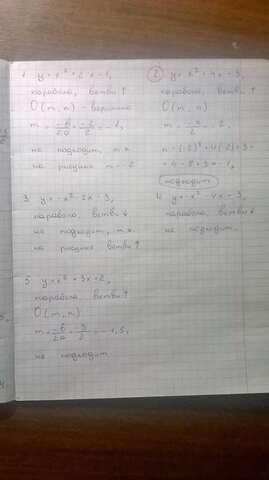 1. y = x² + 2x - 1,
парабола, ветви ↑
O(m, n) - вершина
m = -b/2a = -2/2 = -1,
не подходит, т.к.
на рисунке m = -2
2. y = x² + 4x + 3,
парабола, ветви ↑
O(m, n)
m = -4/2 = -2,
n = (-2)² + 4(-2) + 3 =
= 4 - 8 + 3 = -1,
подходит
3. y = -x² - 2x - 3,
парабола, ветви ↓
не подходит, т.к.
на рисунке ветви ↑
4. y = -x² - 4x - 3,
парабола, ветви ↓
не подходит.
5. y = x² + 3x + 2,
парабола, ветви ↑
O(m, n)
m = -b/2a = -3/2 = -1,5,
не подходит